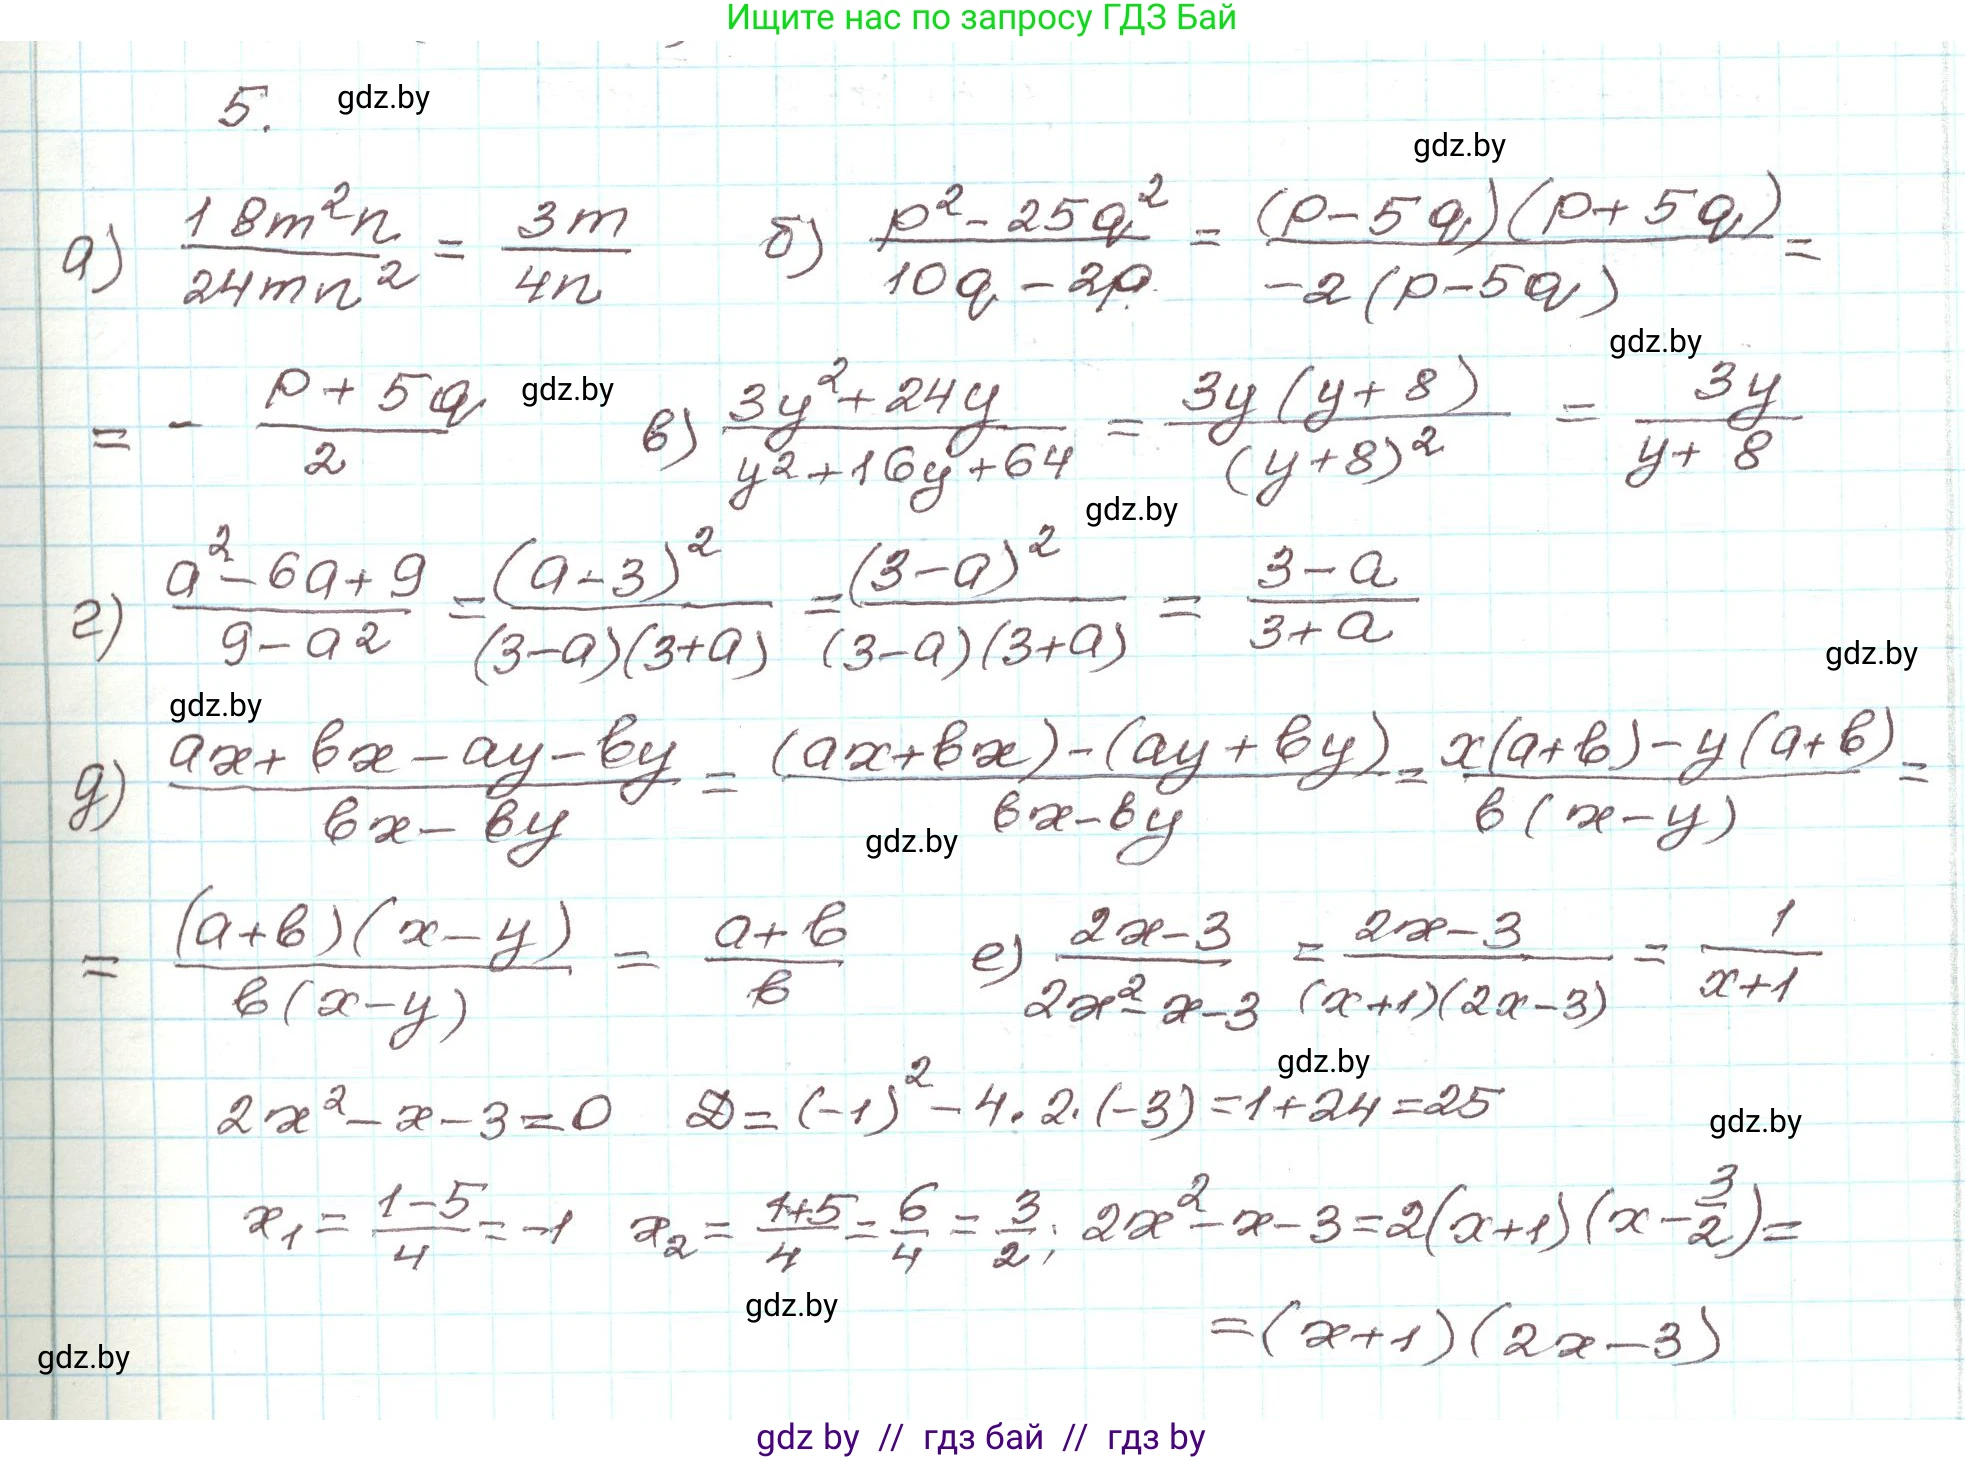 Ищите нас по запросу ГДЗ Бай
5. gdz.by
gdz.by
а) 18m²n/24mn² = 3m/4n б) p² - 25q²/10q - 2p = (p - 5q)(p + 5q)/-2(p - 5q) =
gdz.by
= - p + 5q/2 gdz.by в) 3y² + 24y/y² + 16y + 64 = 3y(y + 8)/(y + 8)² = 3y/y + 8
gdz.by
г) a² - 6a + 9/9 - a² = (a - 3)²/(3 - a)(3 + a) = (3 - a)²/(3 - a)(3 + a) = 3 - a/3 + a
gdz.by
gdz.by
д) ax + bx - ay - by/bx - by = (ax + bx) - (ay + by)/bx - by = x(a + b) - y(a + b)/b(x - y) =
gdz.by
= (a + b)(x - y)/b(x - y) = a + b/b е) 2x - 3/2x² - x - 3 = 2x - 3/(x + 1)(2x - 3) = 1/x + 1
gdz.by
2x² - x - 3 = 0 D = (-1)² - 4 · 2 · (-3) = 1 + 24 = 25
gdz.by
x₁ = 1 - 5/4 = -1 x₂ = 1 + 5/4 = 6/4 = 3/2; 2x² - x - 3 = 2(x + 1)(x - 3/2) =
gdz.by
= (x + 1)(2x - 3)
gdz.by
gdz by // гдз бай // гдз by